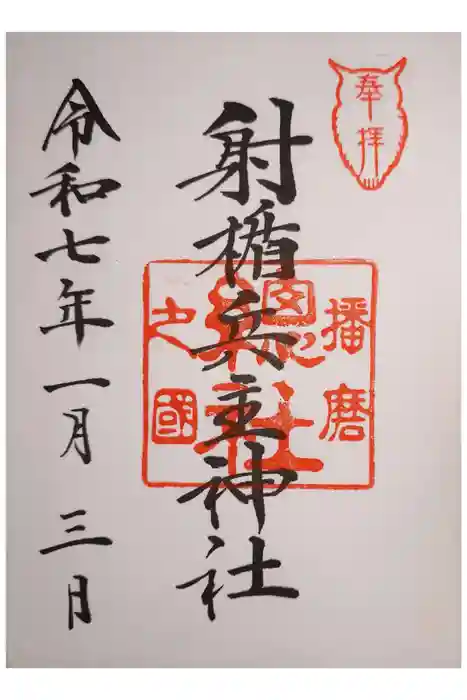 奉拝
射楯兵主神社
播磨
總社
之國
令和七年一月三日